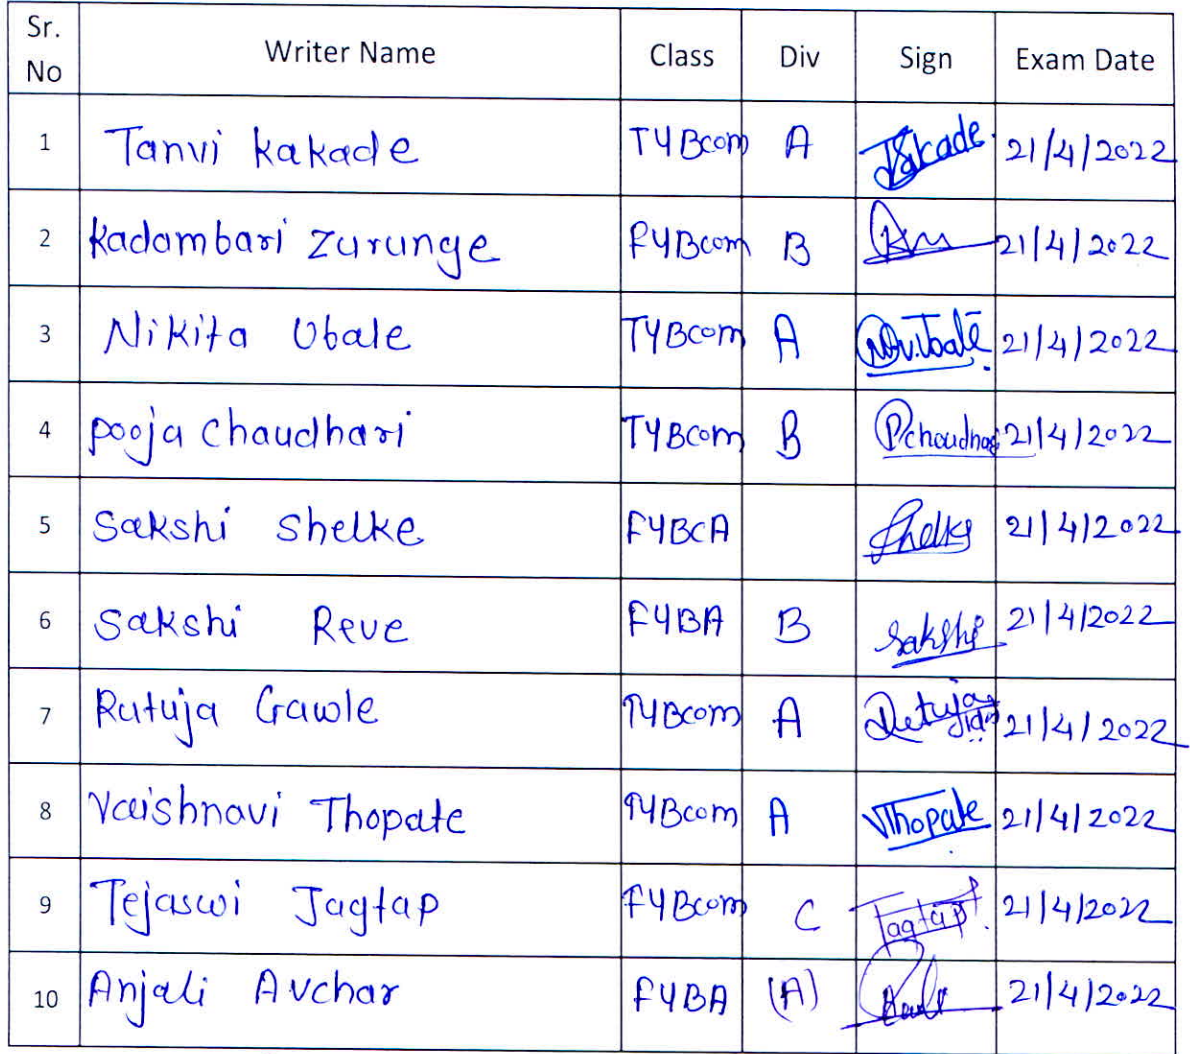 Sr. No Writer Name Class Div Sign Exam Date
1 Tanvi kakade TYBcom A 21/4/2022
2 Kadambari Zurunge FYBcom B 21/4/2022
3 Nikita Ubale TYBcom A 21/4/2022
4 pooja Chaudhari TYBcom B Pchoudhari 21/4/2022
5 Sakshi Shelke FYBCA Shelke 21/4/2022
6 Sakshi Reve FYBA B Sakshi 21/4/2022
7 Rutuja Gawle TYBcom A 21/4/2022
8 Vaishnavi Thopate TYBcom A VThopate 21/4/2022
9 Tejaswi Jagtap FYBcom C Jagtap 21/4/2022
10 Anjali Avchar FYBA (A) 21/4/2022